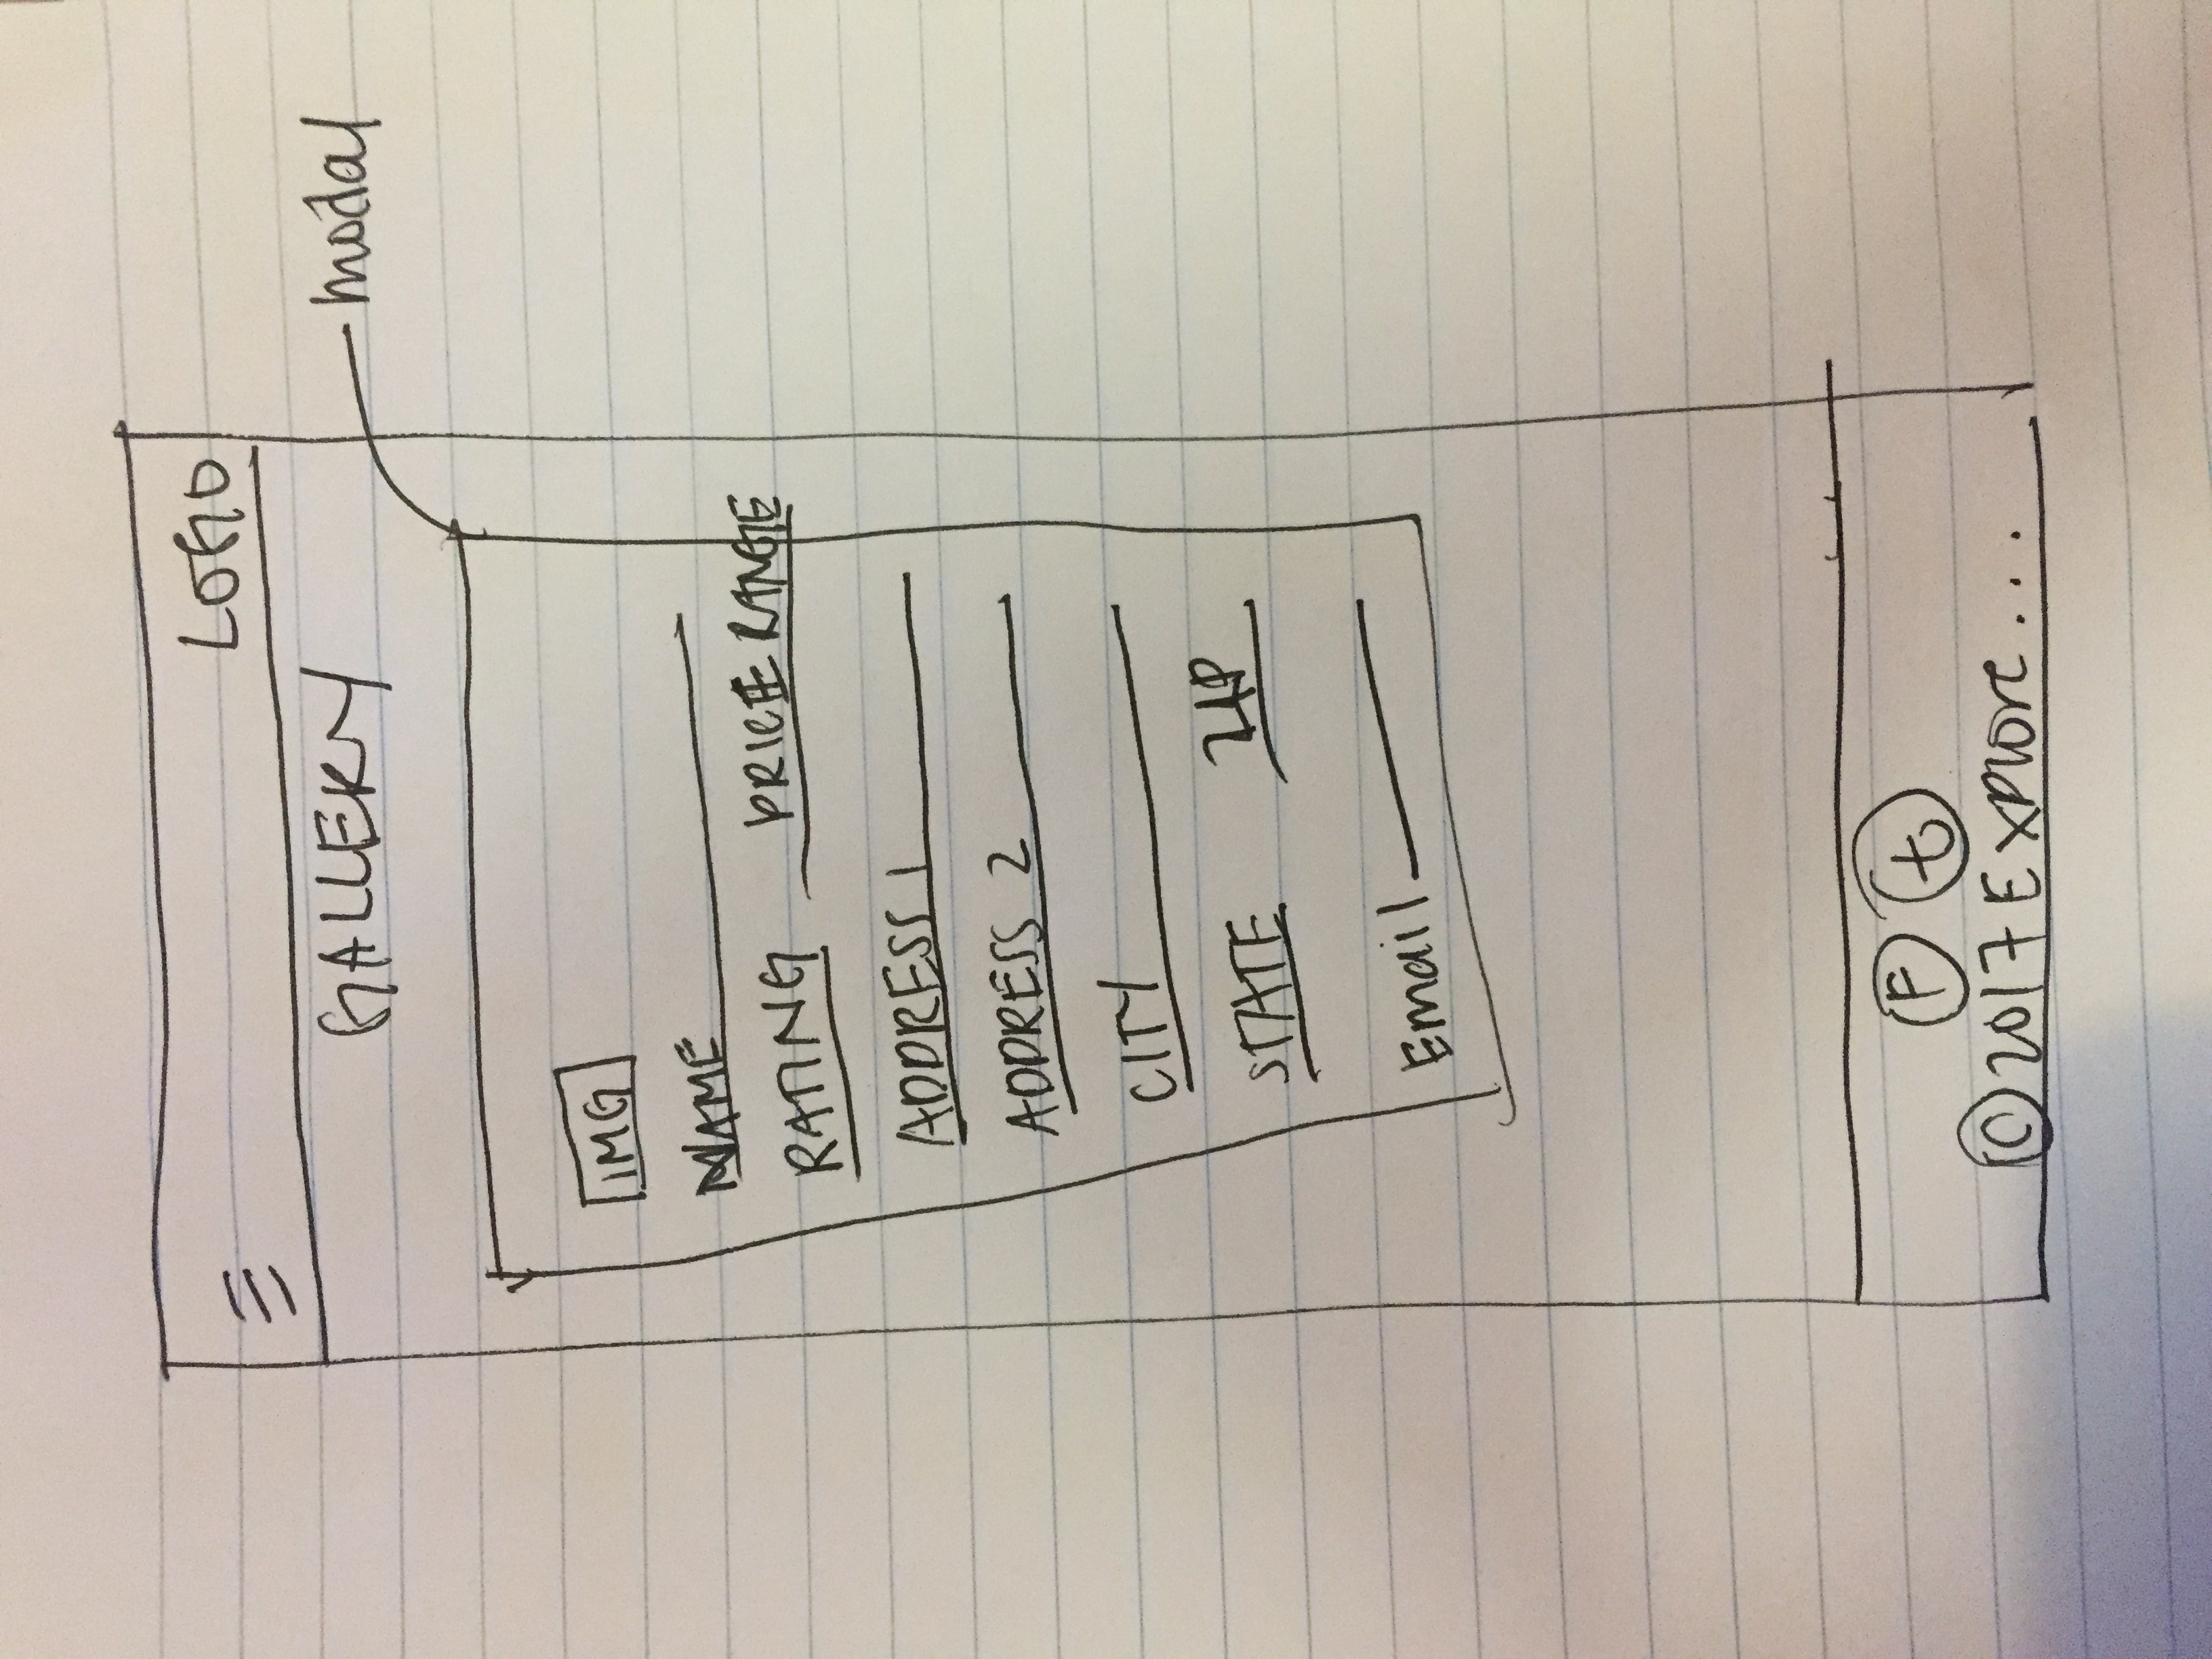 LOGO
GALLERY
modal
IMG
NAME
RATING PRICE RANGE
ADDRESS 1
ADDRESS 2
CITY
STATE ZIP
Email
F t
© 2017 Explore...